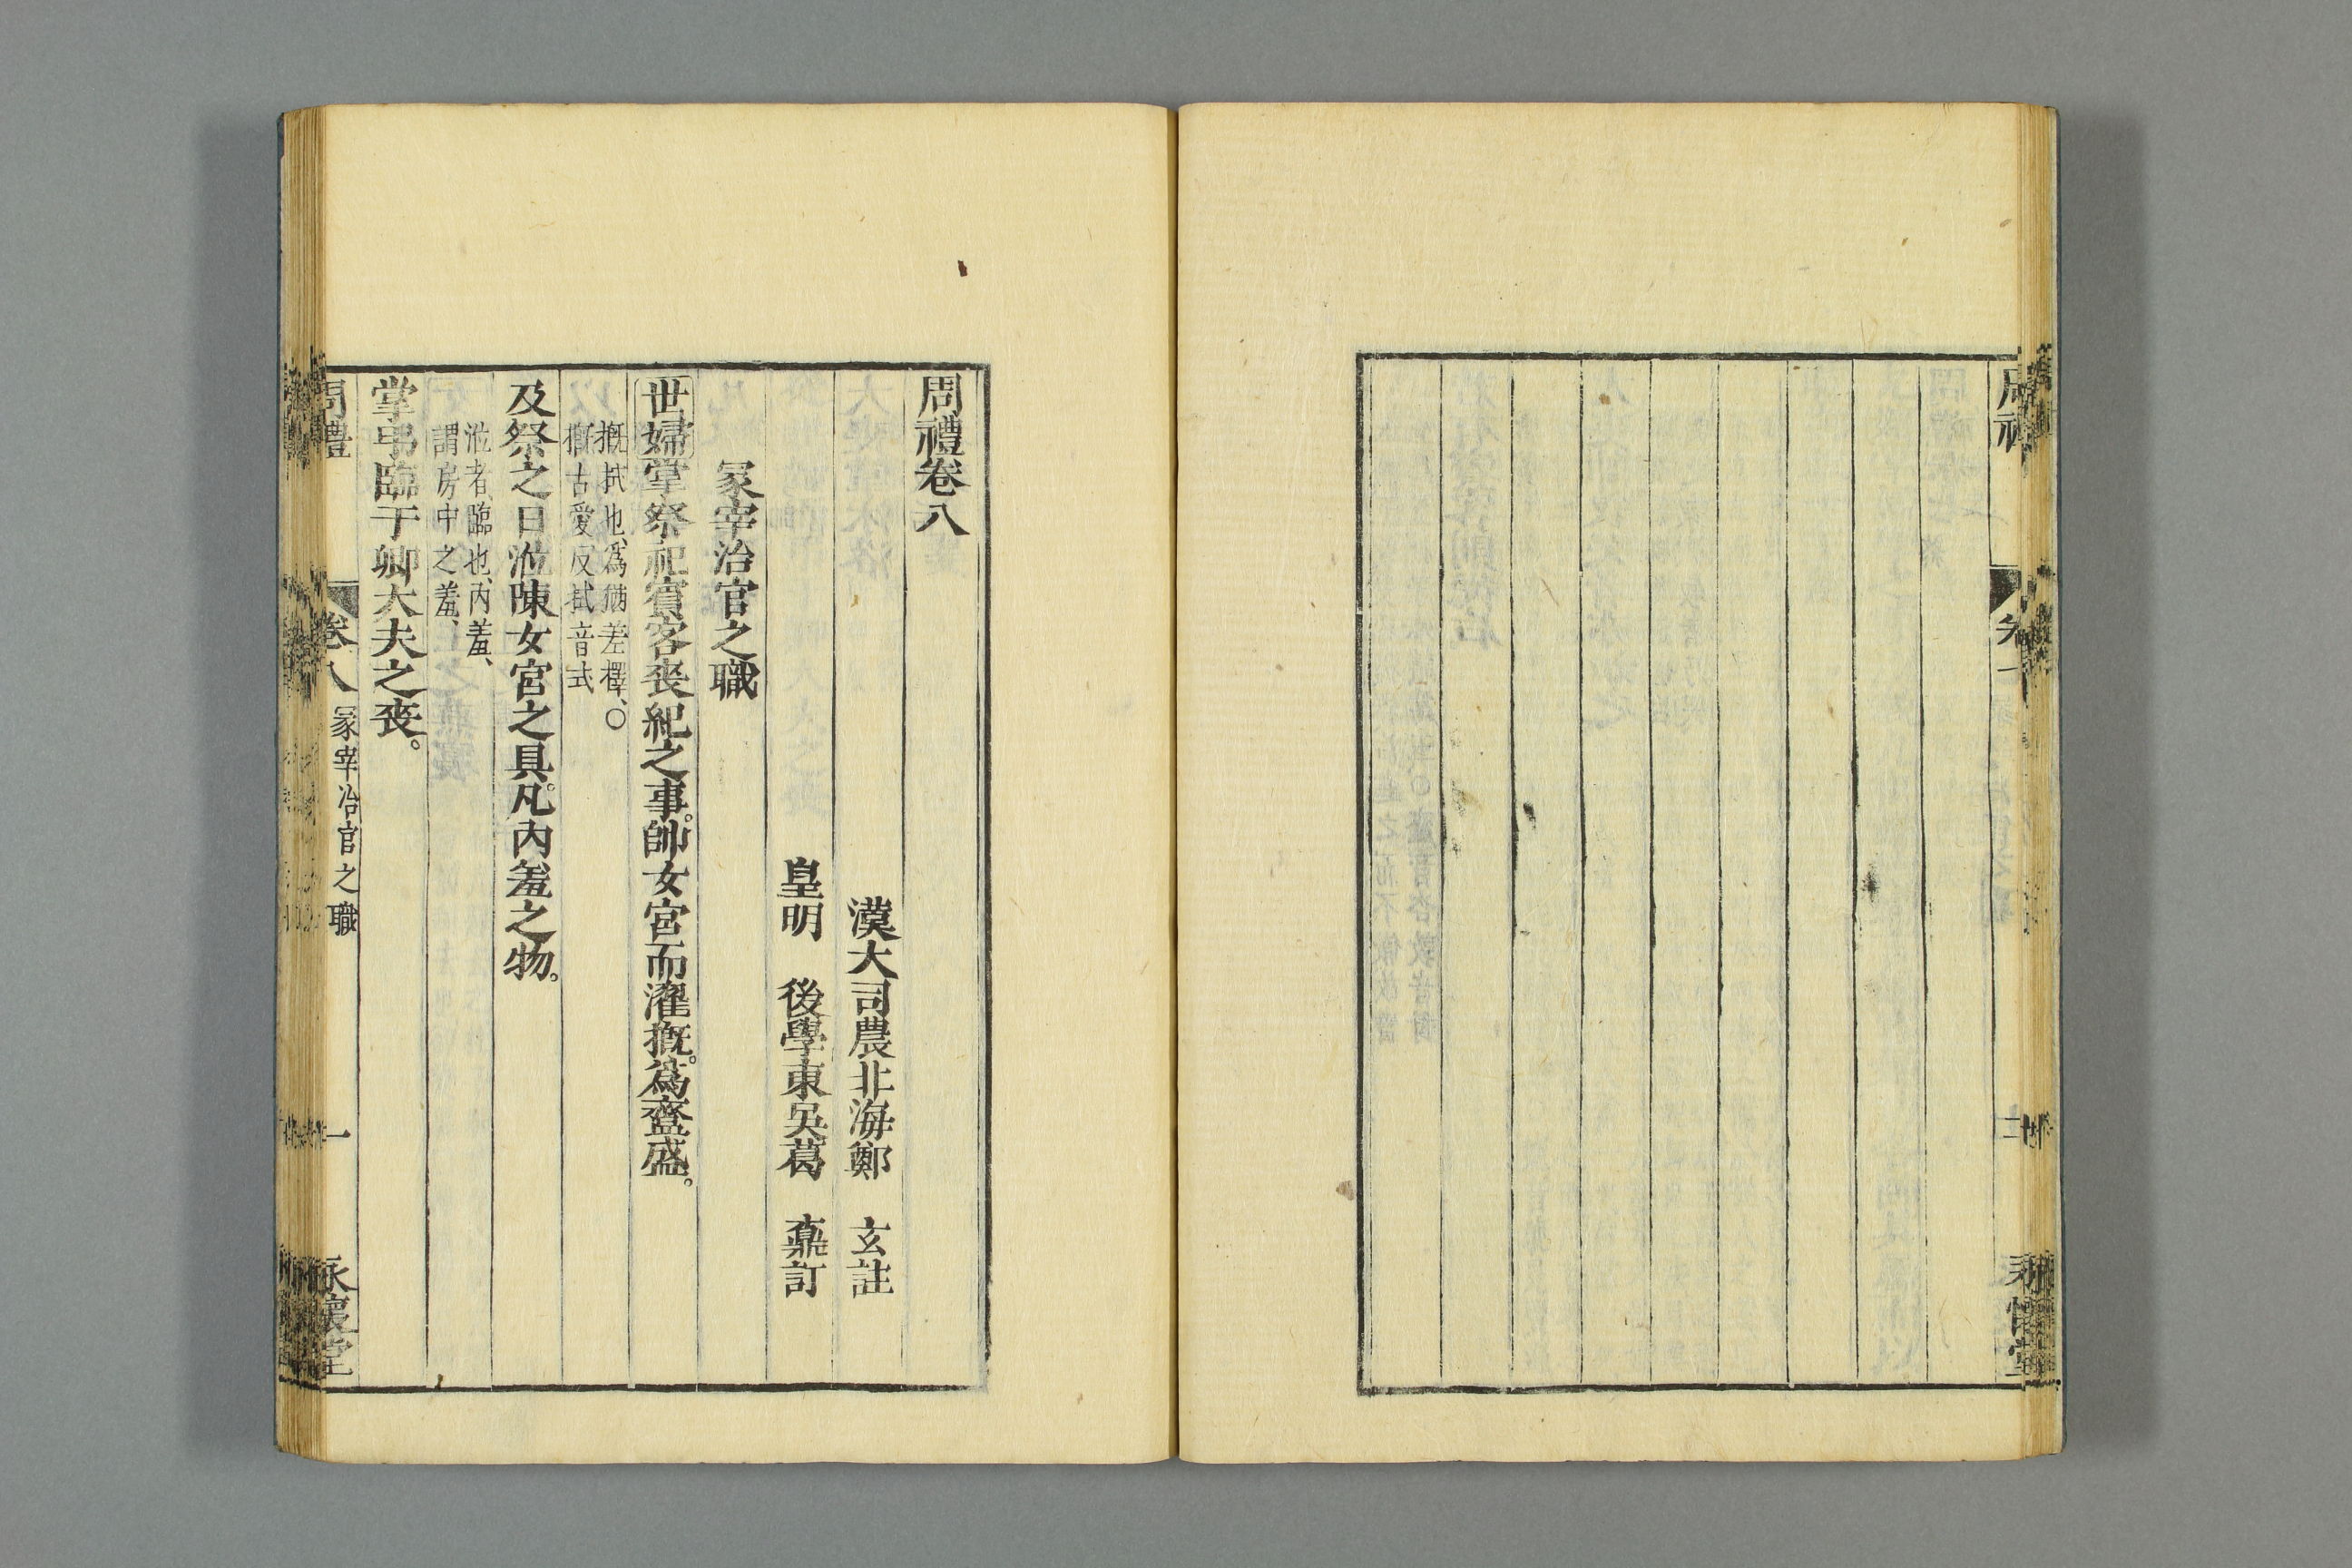 周禮卷八
漢大司農北海鄭　玄註
皇明　後學東吳葛　鼒訂
冢宰治官之職
世婦掌祭祀賓客喪紀之事。帥女宮而濯摡。爲齍盛。
摡拭也、爲猶差擇、〇
摡古愛反拭音式
及祭之日涖陳女宮之具。凡內羞之物。
涖者臨也、內羞、
謂房中之羞、
掌弔臨于卿大夫之喪。
周禮　卷八　冢宰治官之職　一　永懷堂